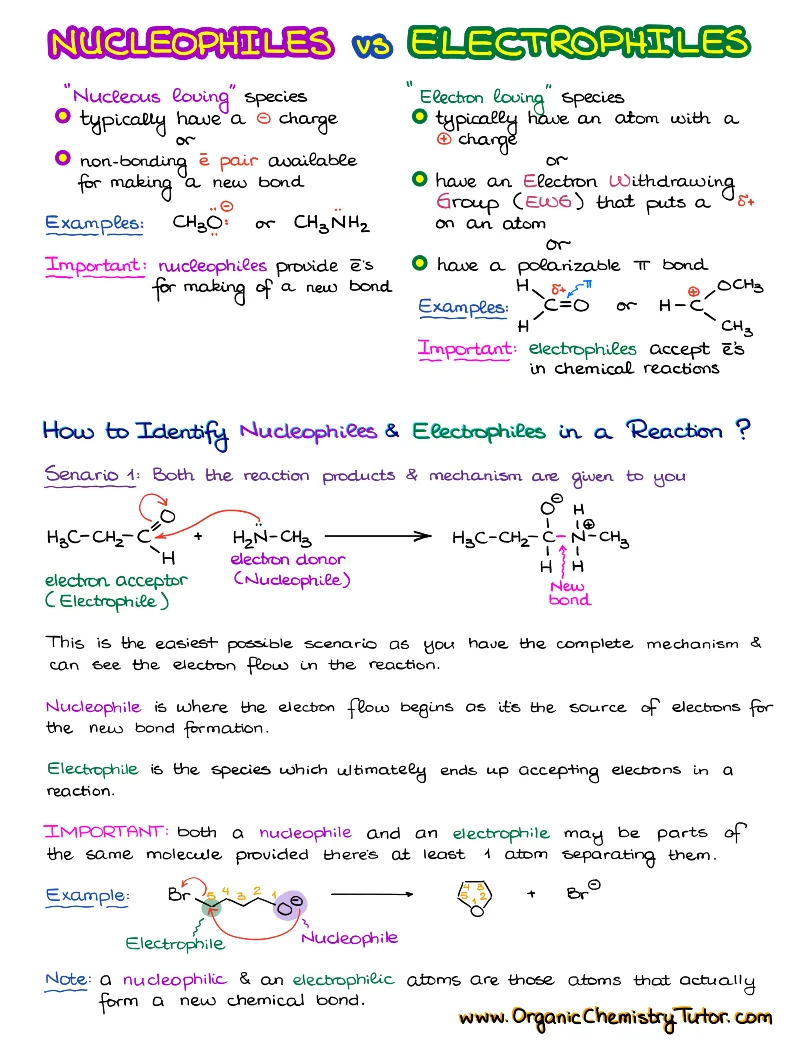 NUCLEOPHILES vs ELECTROPHILES
"Nucleous loving" species
typically have a ⊖ charge
or
non-bonding ē pair available
for making a new bond
Examples: CH₃O:⊖ or CH₃NH₂
Important: nucleophiles provide ē's
for making of a new bond
"Electron loving" species
typically have an atom with a
⊕ charge
or
have an Electron Withdrawing
Group (EWG) that puts a δ+
on an atom
or
have a polarizable π bond
Examples: H H C=O δ+ π or H-C⊕ OCH₃ CH₃
Important: electrophiles accept ē's
in chemical reactions
How to Identify Nucleophiles & Electrophiles in a Reaction?
Senario 1: Both the reaction products & mechanism are given to you
H₃C-CH₂-C=O H + H₂N-CH₃ → H₃C-CH₂-C-N-CH₃ O⊖ H ⊕ H H
electron acceptor
(Electrophile)
electron donor
(Nucleophile)
New
bond
This is the easiest possible scenario as you have the complete mechanism &
can see the electron flow in the reaction.
Nucleophile is where the electron flow begins as it's the source of electrons for
the new bond formation.
Electrophile is the species which ultimately ends up accepting electrons in a
reaction.
IMPORTANT: both a nucleophile and an electrophile may be parts of
the same molecule provided there's at least 1 atom separating them.
Example: Br 5 4 3 2 1 O⊖ → 4 3 5 2 1 O + Br⊖
Electrophile Nucleophile
Note: a nucleophilic & an electrophilic atoms are those atoms that actually
form a new chemical bond.
www.OrganicChemistryTutor.com